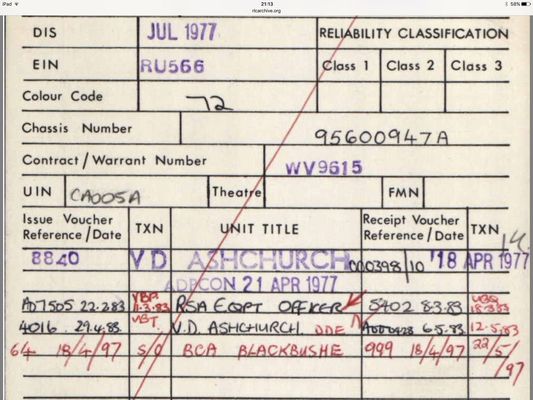 iPad
21:13
58%
rlcarchive.org
DIS JUL 1977 RELIABILITY CLASSIFICATION
EIN RU566 Class 1 Class 2 Class 3
Colour Code 72
Chassis Number 95600947A
Contract/Warrant Number WV9615
UIN CA005A Theatre FMN
Issue Voucher Receipt Voucher
Reference/Date TXN UNIT TITLE Reference/Date TXN
8840 VD ASHCHURCH 000398/10 18 APR 1977 14.
ADPCON 21 APR 1977
AD7505 22.2.83 11.3.83 RSA EQPT OFFICER 5402 8.3.83 18.3.83
4016 29.4.83 V.D. ASHCHURCH DDE 6.5.83 12.5.83
64 18/4/97 S/O BCA BLACKBUSHE 999 18/4/97 22/5/97